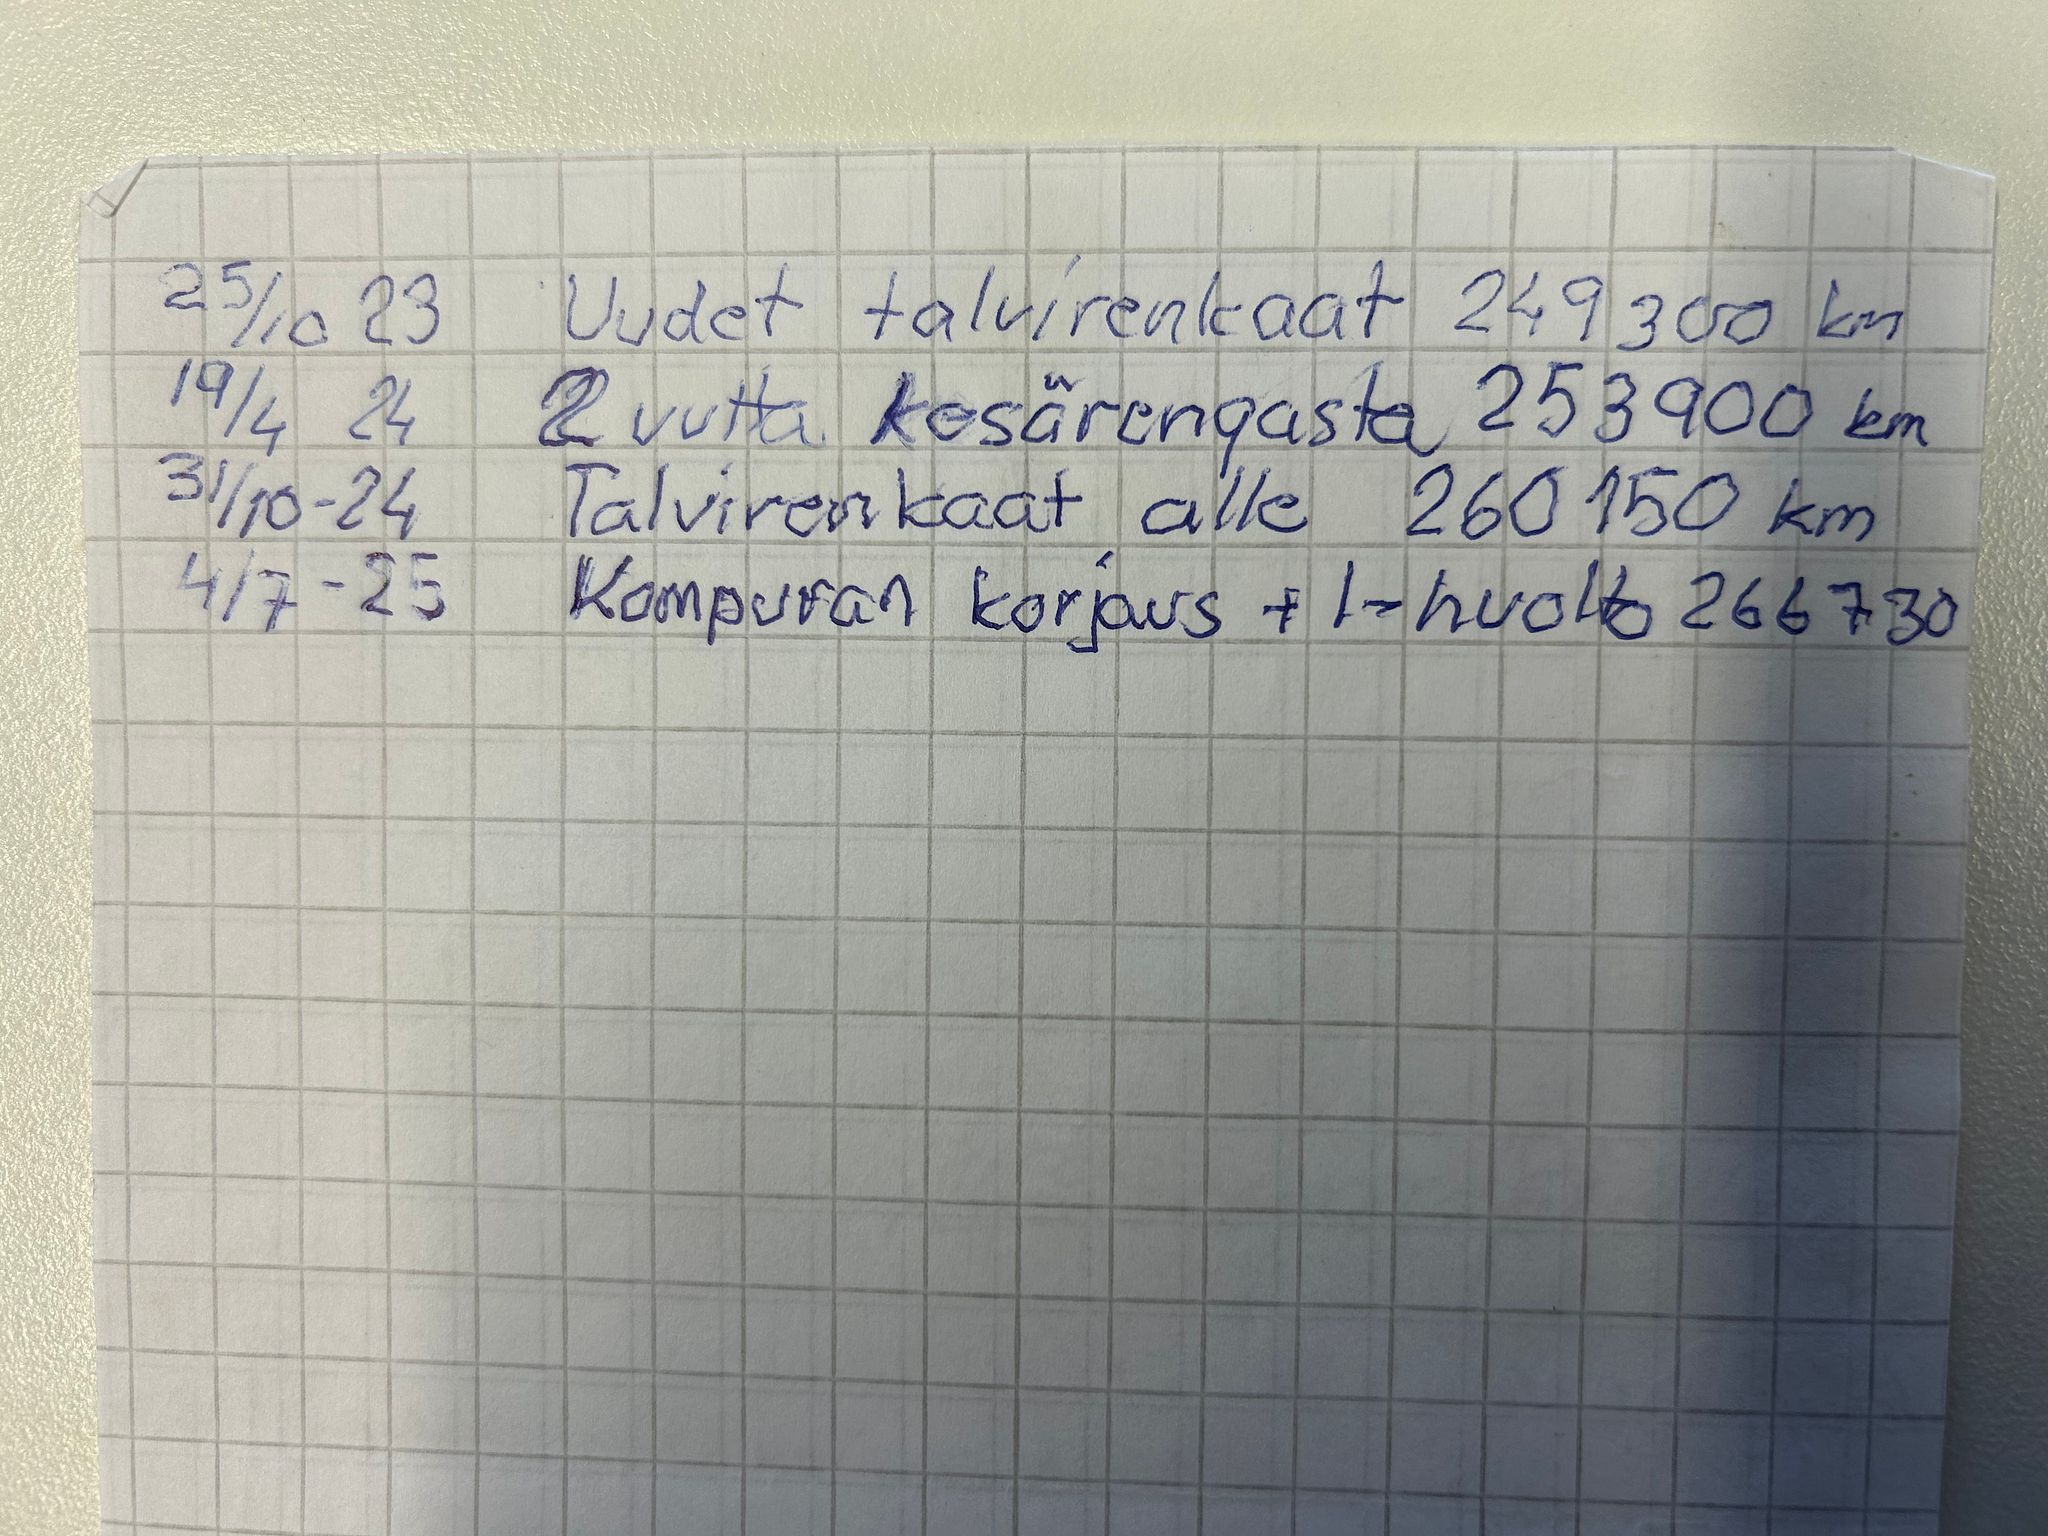 25/10 23 Uudet talvirenkaat 249300 km
19/4 24 2 uutta kesärengasta 253900 km
31/10-24 Talvirenkaat alle 260150 km
4/7-25 Kompuran korjaus + l-huolto 266730